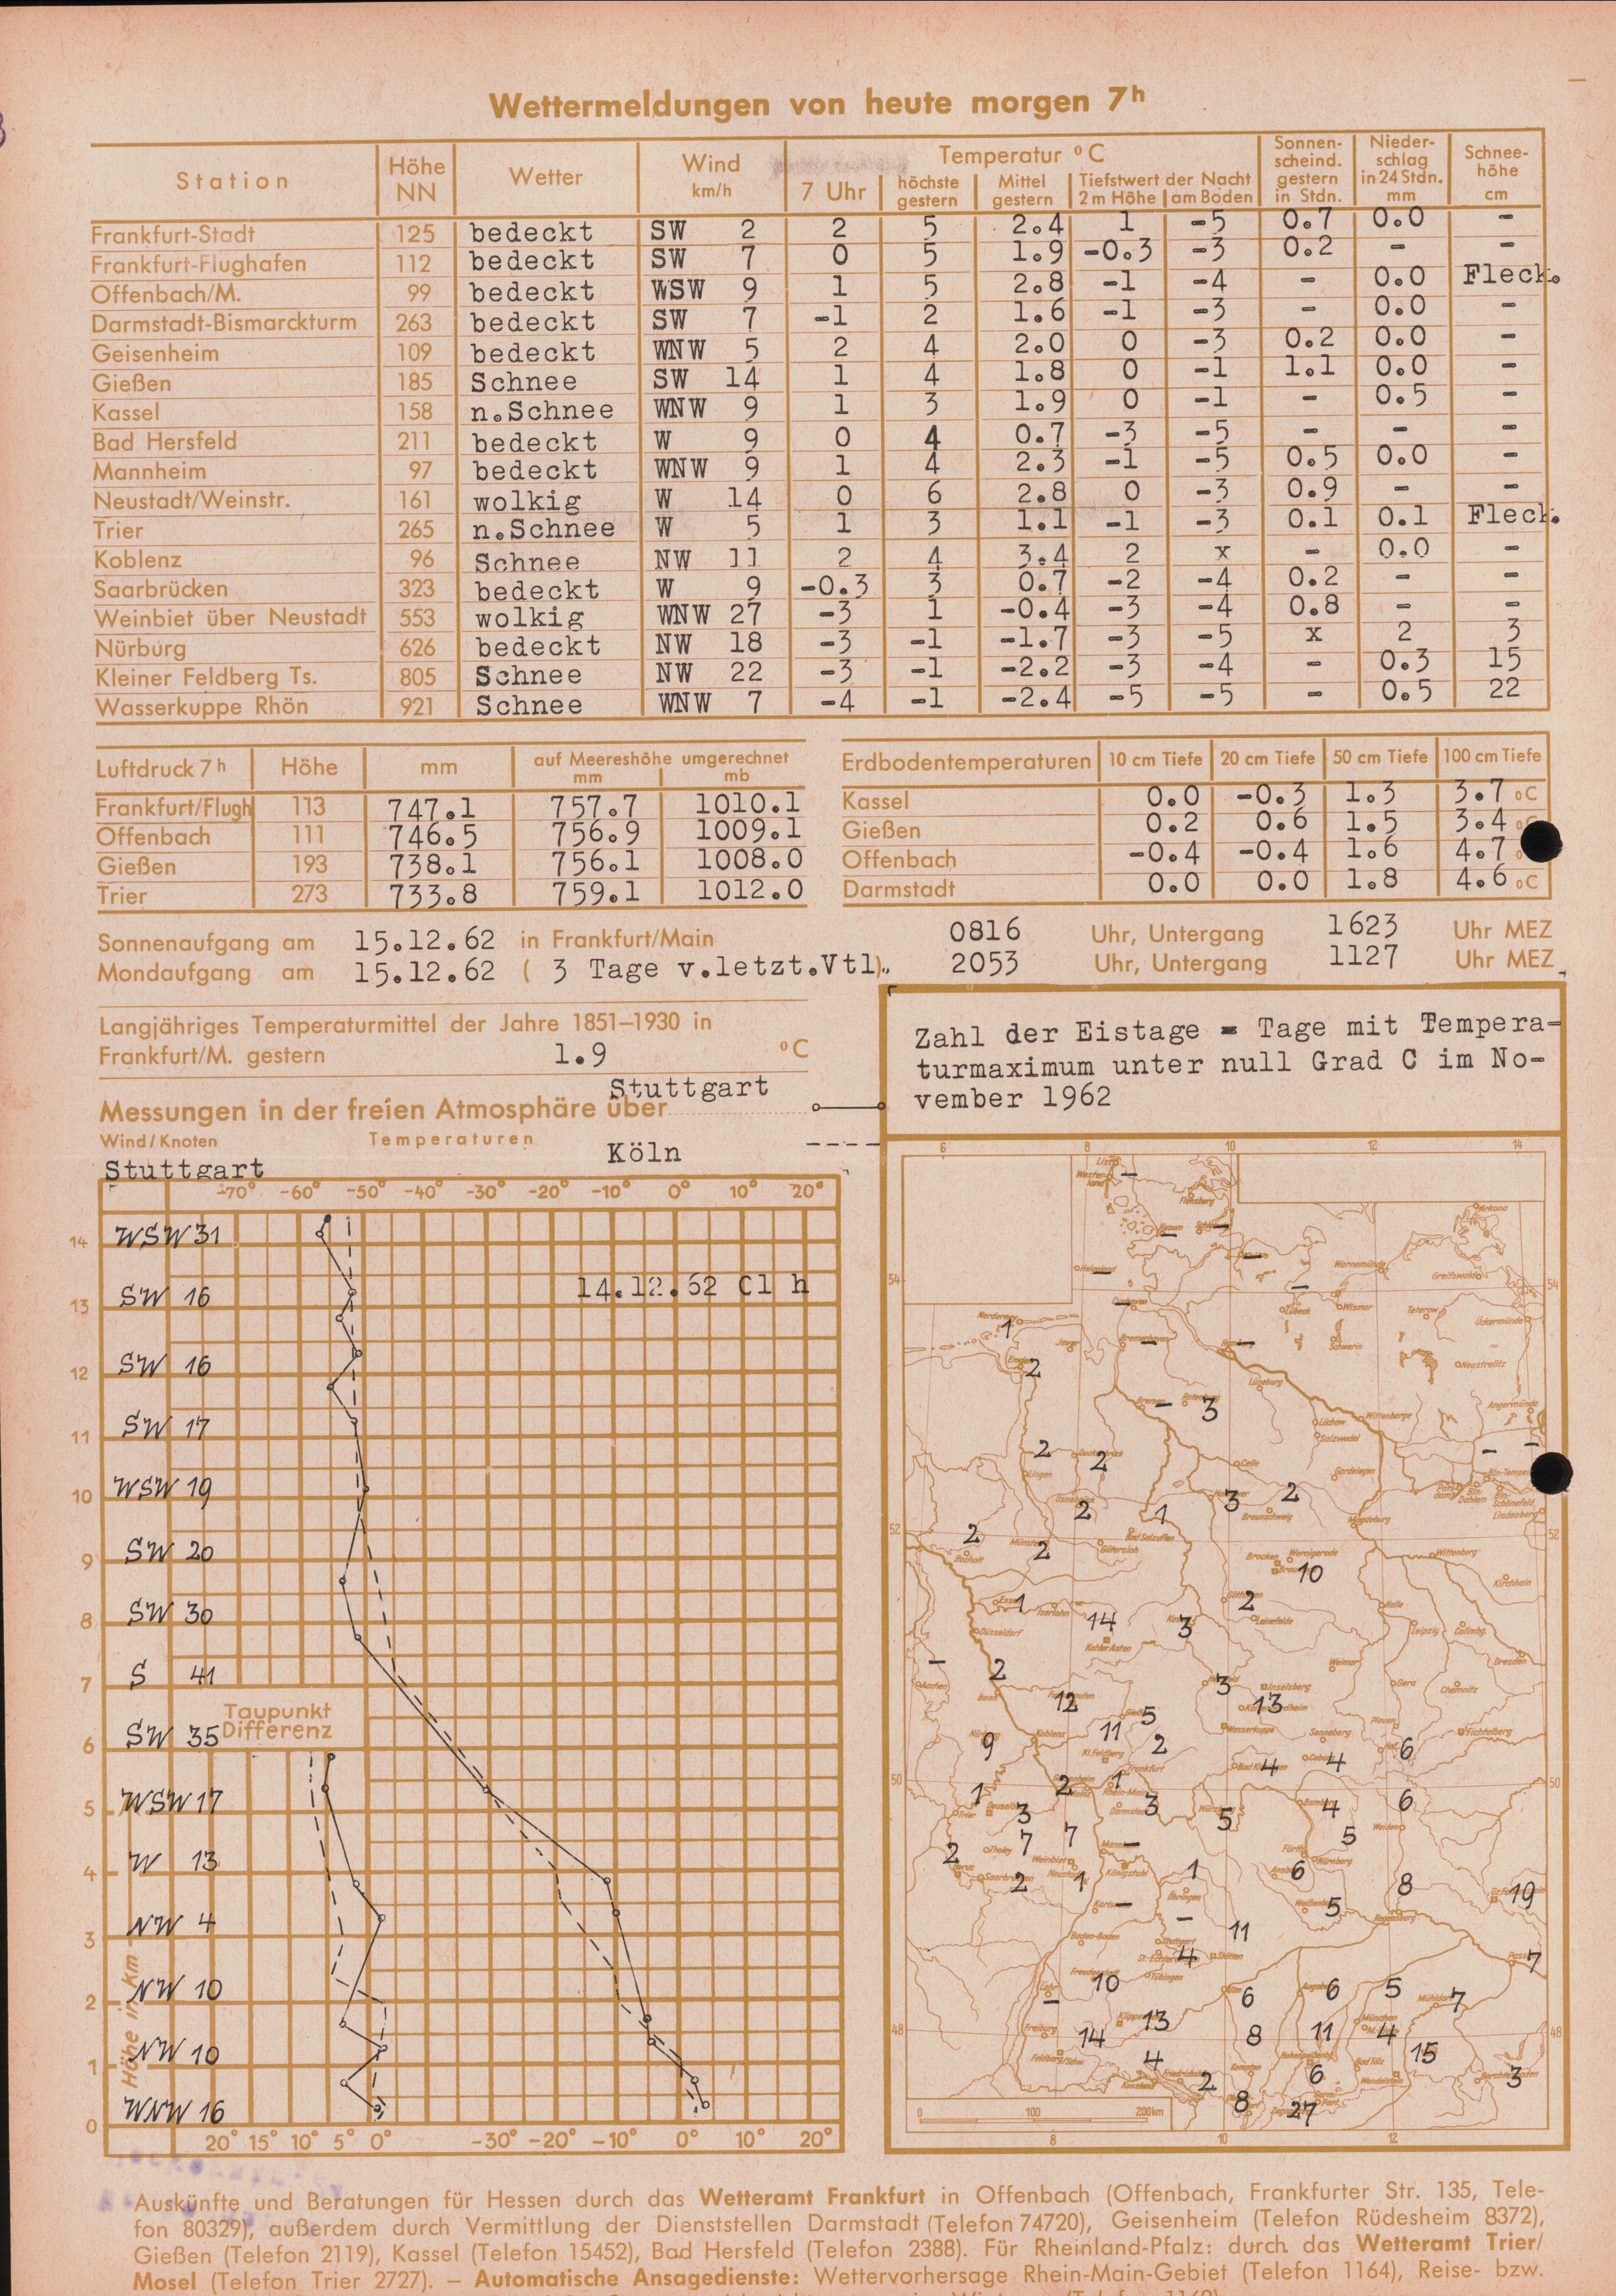 Wettermeldungen von heute morgen 7h
Station Höhe NN Wetter Wind km/h Temperatur °C Sonnenscheind. gestern in Stdn. Niederschlag in 24 Stdn. mm Schneehöhe cm
7 Uhr höchste gestern Mittel gestern Tiefstwert der Nacht 2 m Höhe am Boden
Frankfurt-Stadt 125 bedeckt SW 2 2 5 2.4 1 -5 0.7 0.0 -
Frankfurt-Flughafen 112 bedeckt SW 7 0 5 1.9 -0.3 -3 0.2 - -
Offenbach/M. 99 bedeckt WSW 9 1 5 2.8 -1 -4 - 0.0 Fleck.
Darmstadt-Bismarckturm 263 bedeckt SW 7 -1 2 1.6 -1 -3 - 0.0 -
Geisenheim 109 bedeckt WNW 5 2 4 2.0 0 -3 0.2 0.0 -
Gießen 185 Schnee SW 14 1 4 1.8 0 -1 1.1 0.0 -
Kassel 158 n.Schnee WNW 9 1 3 1.9 0 -1 - 0.5 -
Bad Hersfeld 211 bedeckt W 9 0 4 0.7 -3 -5 - - -
Mannheim 97 bedeckt WNW 9 1 4 2.3 -1 -5 0.5 0.0 -
Neustadt/Weinstr. 161 wolkig W 14 0 6 2.8 0 -3 0.9 - -
Trier 265 n.Schnee W 5 1 3 1.1 -1 -3 0.1 0.1 Fleck.
Koblenz 96 Schnee NW 11 2 4 3.4 2 x - 0.0 -
Saarbrücken 323 bedeckt W 9 -0.3 3 0.7 -2 -4 0.2 - -
Weinbiet über Neustadt 553 wolkig WNW 27 -3 1 -0.4 -3 -4 0.8 - -
Nürburg 626 bedeckt NW 18 -3 -1 -1.7 -3 -5 x 2 3
Kleiner Feldberg Ts. 805 Schnee NW 22 -3 -1 -2.2 -3 -4 - 0.3 15
Wasserkuppe Rhön 921 Schnee WNW 7 -4 -1 -2.4 -5 -5 - 0.5 22
Luftdruck 7h Höhe mm auf Meereshöhe umgerechnet mm mb
Frankfurt/Flugh 113 747.1 757.7 1010.1
Offenbach 111 746.5 756.9 1009.1
Gießen 193 738.1 756.1 1008.0
Trier 273 733.8 759.1 1012.0
Erdbodentemperaturen 10 cm Tiefe 20 cm Tiefe 50 cm Tiefe 100 cm Tiefe
Kassel 0.0 -0.3 1.3 3.7 °C
Gießen 0.2 0.6 1.5 3.4 °C
Offenbach -0.4 -0.4 1.6 4.7
Darmstadt 0.0 0.0 1.8 4.6 °C
Sonnenaufgang am 15.12.62 in Frankfurt/Main 0816 Uhr, Untergang 1623 Uhr MEZ
Mondaufgang am 15.12.62 ( 3 Tage v.letzt.Vtl). 2053 Uhr, Untergang 1127 Uhr MEZ
Langjähriges Temperaturmittel der Jahre 1851–1930 in
Frankfurt/M. gestern 1.9 °C
Messungen in der freien Atmosphäre über Stuttgart
Wind/Knoten Temperaturen Köln
Stuttgart
-70° -60° -50° -40° -30° -20° -10° 0° 10° 20°
14 WSW 31
14.12.62 01 h
13 SW 16
12 SW 16
11 SW 17
10 WSW 19
9 SW 20
8 SW 30
7 S 41
Taupunkt
Differenz
6 SW 35
5 WSW 17
4 W 13
3 NW 4
2 NW 10
1 NW 10
0 WNW 16
Höhe in km
20° 15° 10° 5° 0° -30° -20° -10° 0° 10° 20°
Zahl der Eistage = Tage mit Tempera-
turmaximum unter null Grad C im No-
vember 1962
6 8 10 12 14
Helgoland
Arkona
Warnemünde
Greifswald
54 54
Lübeck Wismar Teterow Ückermünde
Norderney 1
Schwerin
Emden 2
Neustrelitz
Lüneburg
Bremen - 3
Lüchow Wittenberge Angermünde
Salzwedel
2 2
Lingen Celle Gardelegen
2 1 3 2
Braunschweig Magdeburg Lindenberg
52 52
2 2
Bocholt Münster Gütersloh Bad Salzuflen
Brocken Wernigerode Wittenberg
10
Kirchhain
1 14 3 2
Düsseldorf Iserlohn Kahler Asten Leinefelde Halle Leipzig
- 2 3
Aachen Bonn Weimar Gera Chemnitz Dresden
12 5 13
Inselsberg
9 11 2 6
Koblenz Kl.Feldberg Wasserkuppe Sonneberg Plauen Fichtelberg
4 4
50 50
1 2 1 3 Frankfurt
Trier 3 5 4 6
Würzburg Bamberg Weiden
7 7 - 5
2 Tholey Weinbiet Mannheim Fürth Nürnberg
2 1 1 6 8 19
Königstuhl Öhringen 5
- - 11 7
Baden-Baden Stuttgart 4 Stötten Regensburg Passau
10 6 6 5 7
Tübingen Mühldorf
48 48
14 13 8 11 4 15
Freiburg München
4 2 6 3
Kempten Bad Tölz Wendelstein
8 27
0 100 200km
8 10 12
Auskünfte und Beratungen für Hessen durch das Wetteramt Frankfurt in Offenbach (Offenbach, Frankfurter Str. 135, Tele-
fon 80329), außerdem durch Vermittlung der Dienststellen Darmstadt (Telefon 74720), Geisenheim (Telefon Rüdesheim 8372),
Gießen (Telefon 2119), Kassel (Telefon 15452), Bad Hersfeld (Telefon 2388). Für Rheinland-Pfalz: durch das Wetteramt Trier/
Mosel (Telefon Trier 2727). — Automatische Ansagedienste: Wettervorhersage Rhein-Main-Gebiet (Telefon 1164), Reise- bzw.